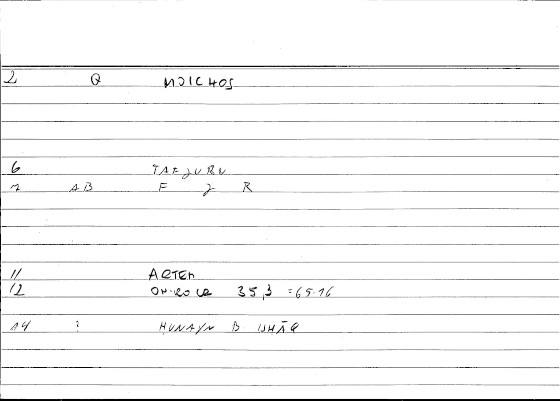 2 Q MOICHOS
6 TAFJURU
7 AB F J R
11 ARTEM
12 ONIROCR 35,3 =65.16
14 ? HUNAYN B ISHĀQ